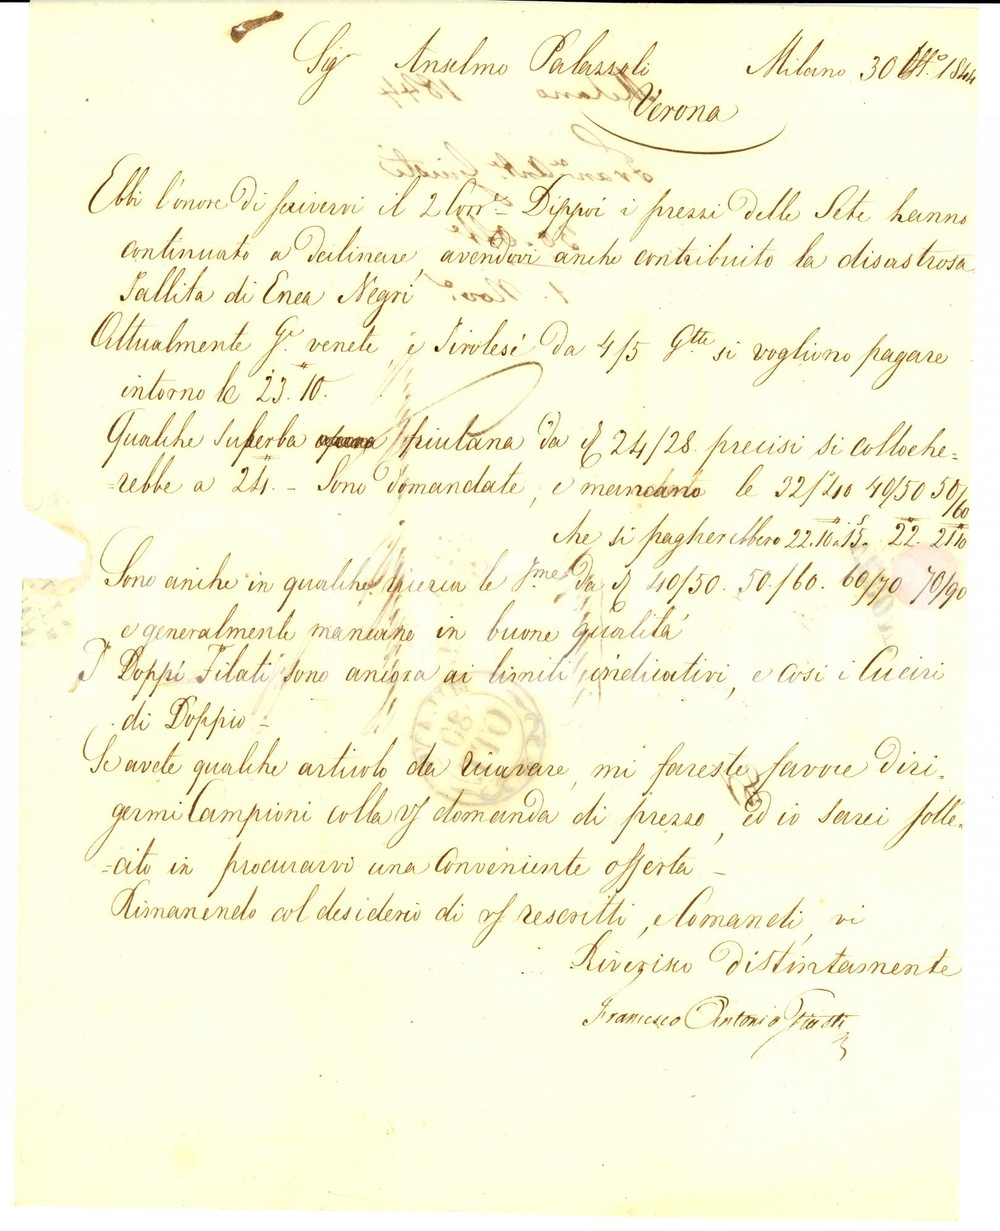 Sigr Anselmo Palazzoli Milano 30 Ott.e 1844
Verona
Ebbi l'onore di scrivervi il 2 Corr.e Dippoi i prezzi delle Sete hanno
continuato a declinare avendovi anche contribuito la disastrosa
Fallita di Enea Negri
Attualmente G.e venete e Tirolesi da 4/5 Gtte si vogliono pagare
intorno le 23.10.
Qualche superba friulana da 24/28 precisi si colloche=
=rebbe a 24. - Sono domandate, e mancano le 32/40 40/50 50/60
che si pagherebbero 22.10 a 15. 22. 21.10
Sono anche in qualche ricerca le Tme da 40/50. 50/60. 60/70 70/90
e generalmente mancano in buone qualità
I Doppi Filati sono ancora ai limiti indicativi, e così i Cuciri
di Doppio -
Se avete qualche articolo da ricavare, mi fareste favore diri=
germi Campioni colla vs domanda di prezzo, ed io sarei solle=
=cito in procurarvi una Conveniente offerta -
Rimanendo col desiderio di vs rescritti, e Comandi, vi
Riverisco distintamente
Francesco Antonio Giusti